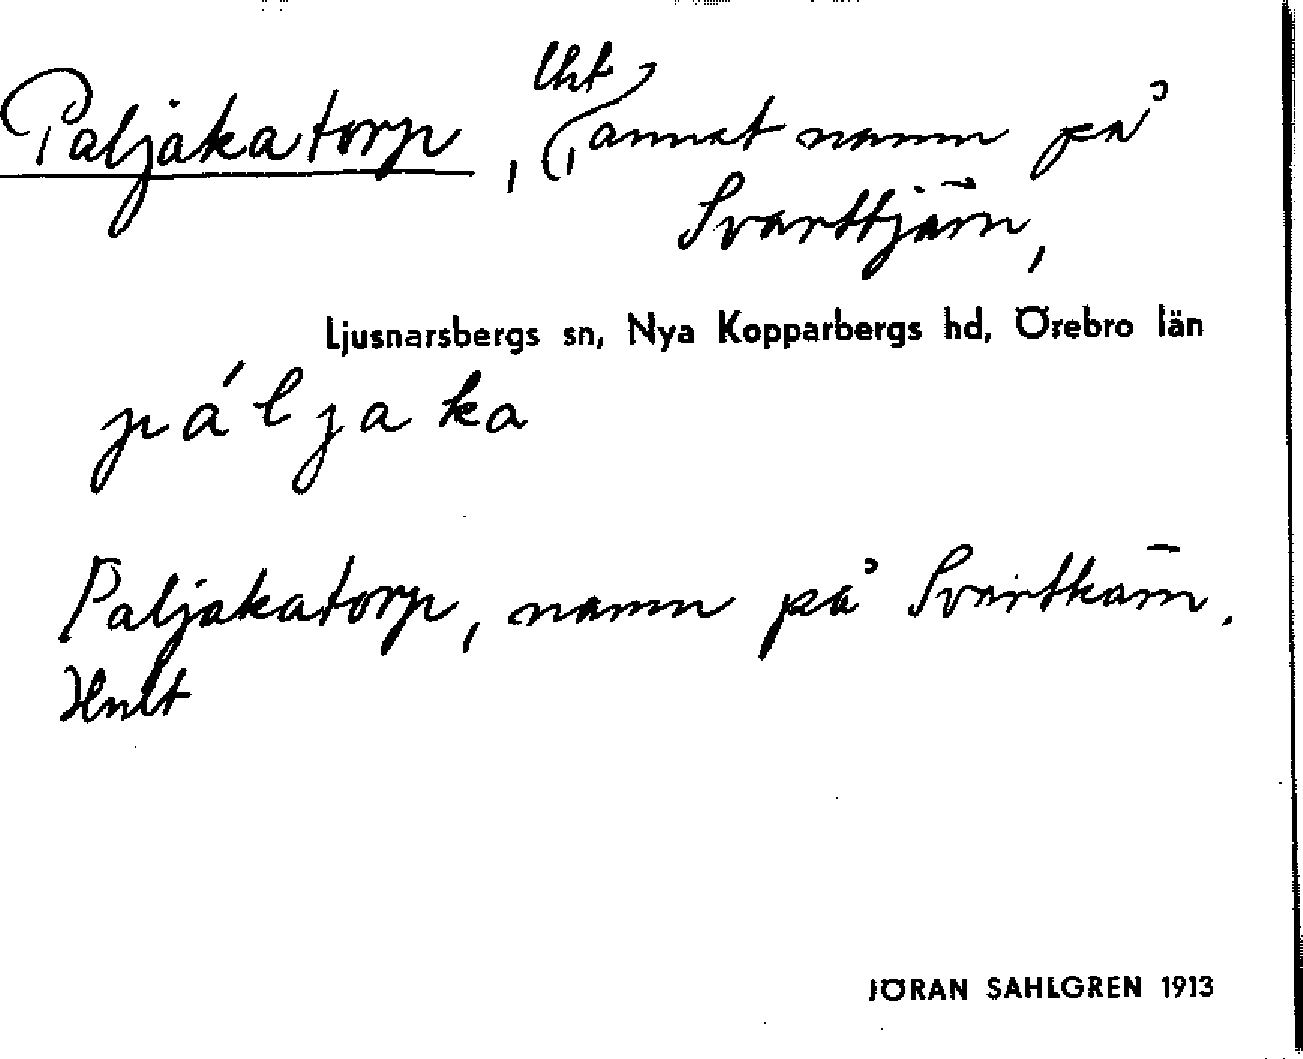 Paljakatorp, (, annat namn på
Svarttjärn,
Ljusnarsbergs sn, Nya Kopparbergs hd, Örebro län
páljaka
Paljakatorp, namn på Svartkärn.
Hult
JÖRAN SAHLGREN 1913